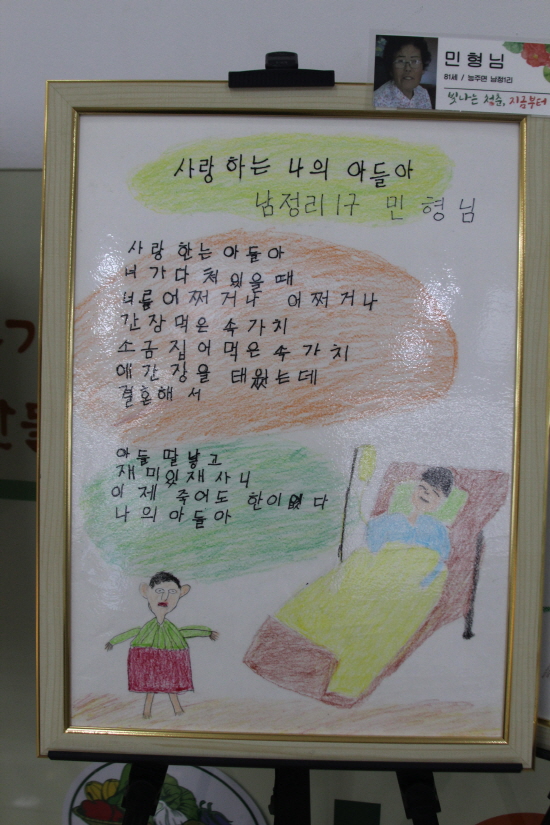 민형님
81세 / 능주면 남정1리
빛나는 청춘, 지금부터
사랑하는 나의 아들아
남정리1구 민형님
사랑한는 아들아
너가다쳐있을때
너를어쩌거나 어쩌거나
간장먹은속가치
소금집어먹은속가치
애간장을 태웠는데
결혼해서
아들딸낳고
재미있재사니
이제 죽어도 한이없다
나의아들아